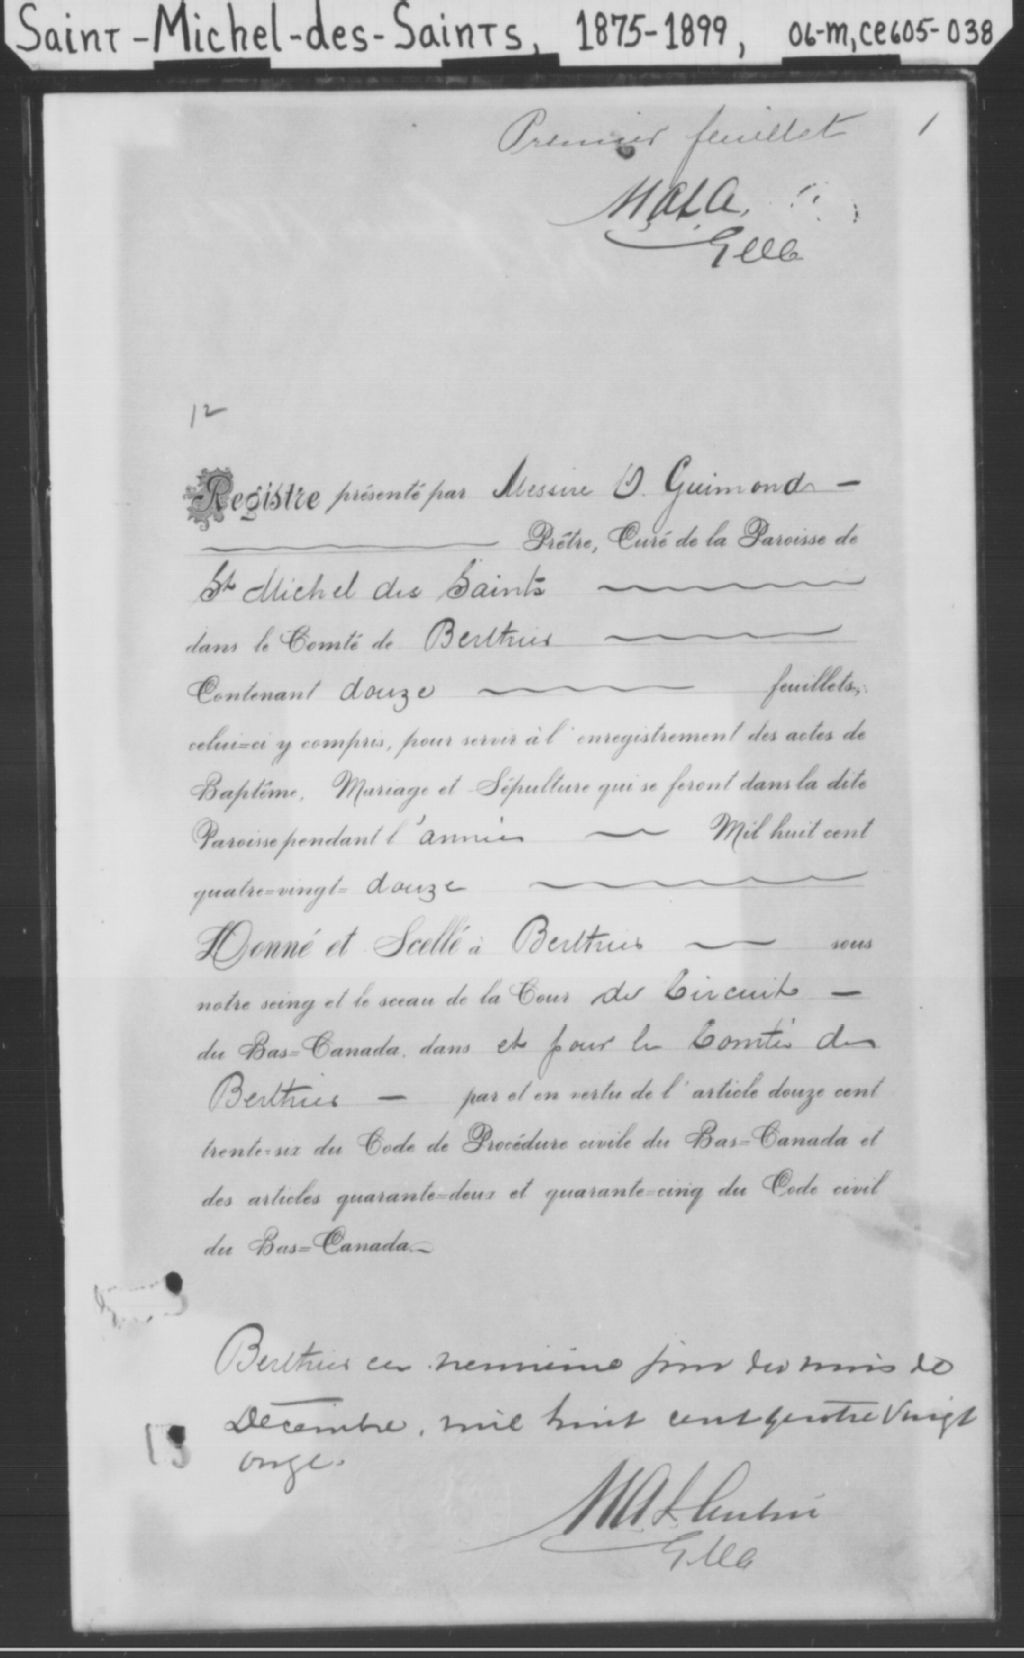 Saint-Michel-des-Saints, 1875-1899, 06-M,CE605-038
Premier feuillet 1
12
Registre présenté par Messire O. Guimond
Prêtre, Curé de la Paroisse de
St Michel des Saints
dans le Comté de Berthier
Contenant douze feuillets,
celui-ci y compris, pour servir à l'enregistrement des actes de
Baptême, Mariage et Sépulture qui se feront dans la dite
Paroisse pendant l'année Mil huit cent
quatre-vingt-douze
Donné et Scellé à Berthier sous
notre seing et le sceau de la Cour de Circuit
du Bas-Canada, dans et pour le Comté de
Berthier par et en vertu de l'article douze cent
trente-six du Code de Procédure civile du Bas-Canada et
des articles quarante-deux et quarante-cinq du Code civil
du Bas-Canada.
Berthier ce neuvième jour du mois de
Décembre, mil huit cent quatre vingt
onze.